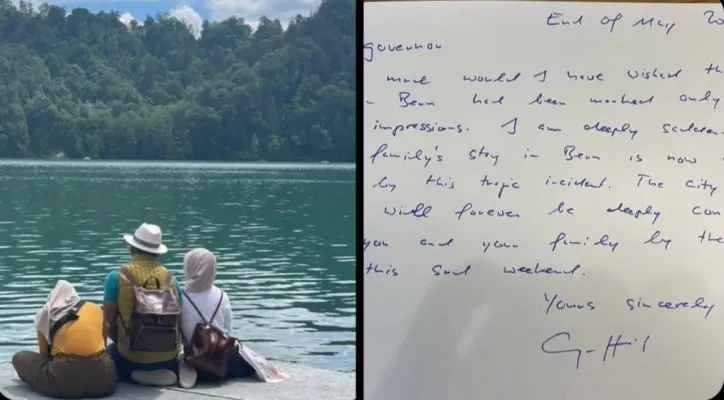 End of May 20
governor
much would I have wished th
Bern had been marked only
impressions. I am deeply sadden
family's stay in Bern is now
by this tragic incident. The city
will forever be deeply con
you and your family by the
this sad weekend.
Yours sincerely